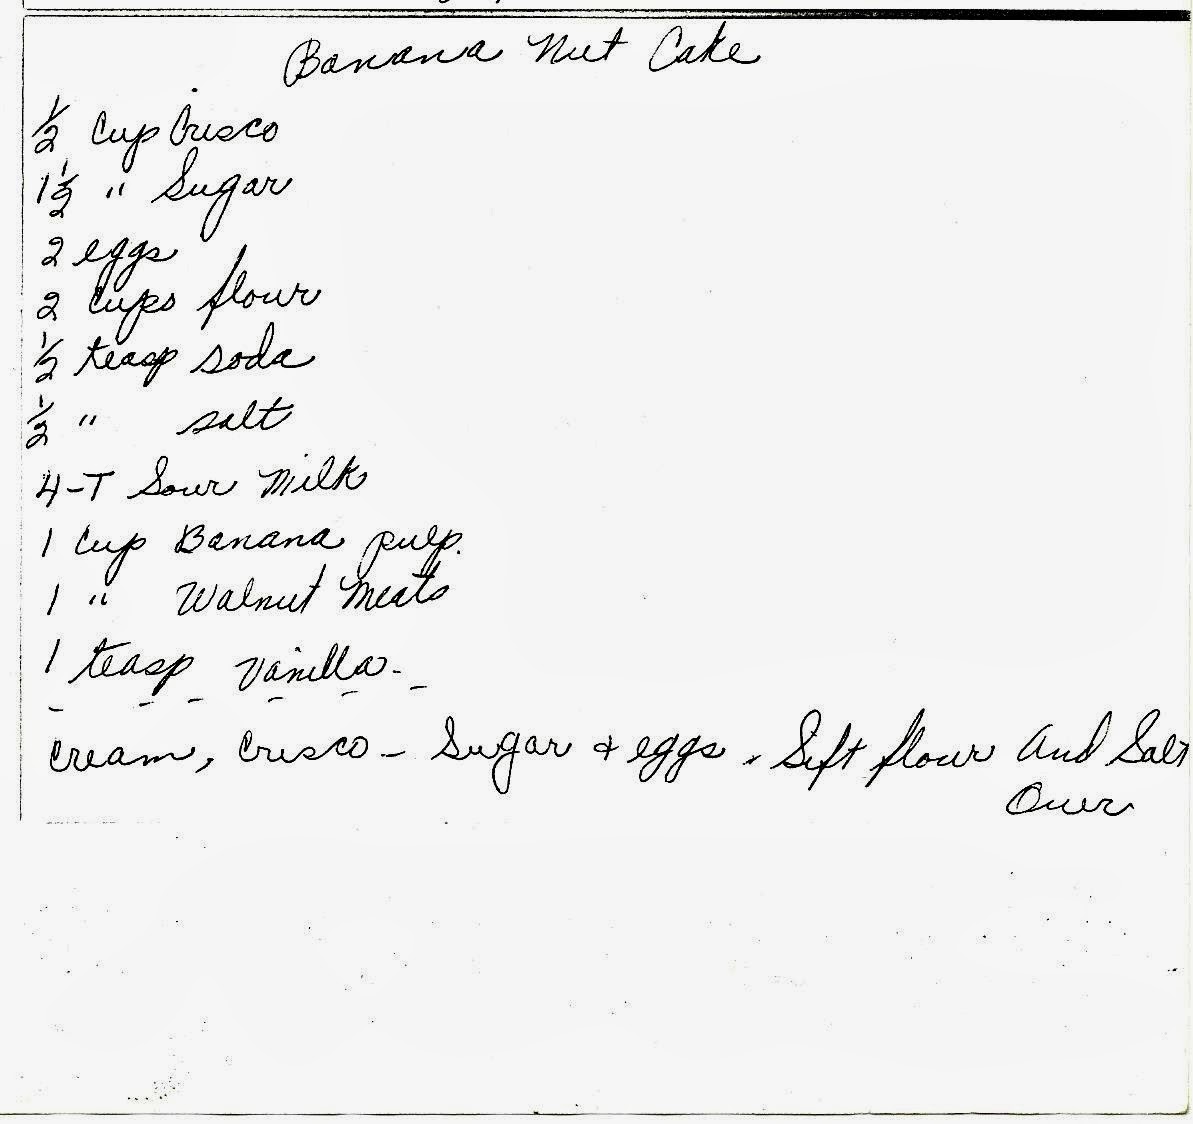 Banana Nut Cake
½ Cup Crisco
1½ " Sugar
2 eggs
2 Cups flour
½ teasp soda
½ " salt
4-T Sour Milk
1 Cup Banana pulp.
1 " Walnut Meats
1 teasp Vanilla-
Cream, Crisco - Sugar + eggs. Sift flour And Salt
Over